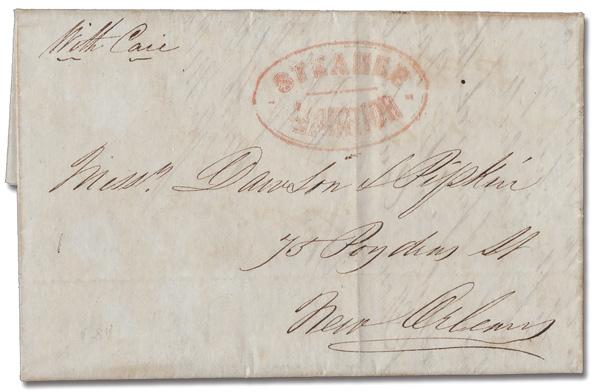 With Care
STEAMER
Messrs. Dawson & Pipkin
75 Poydras St
New Orleans